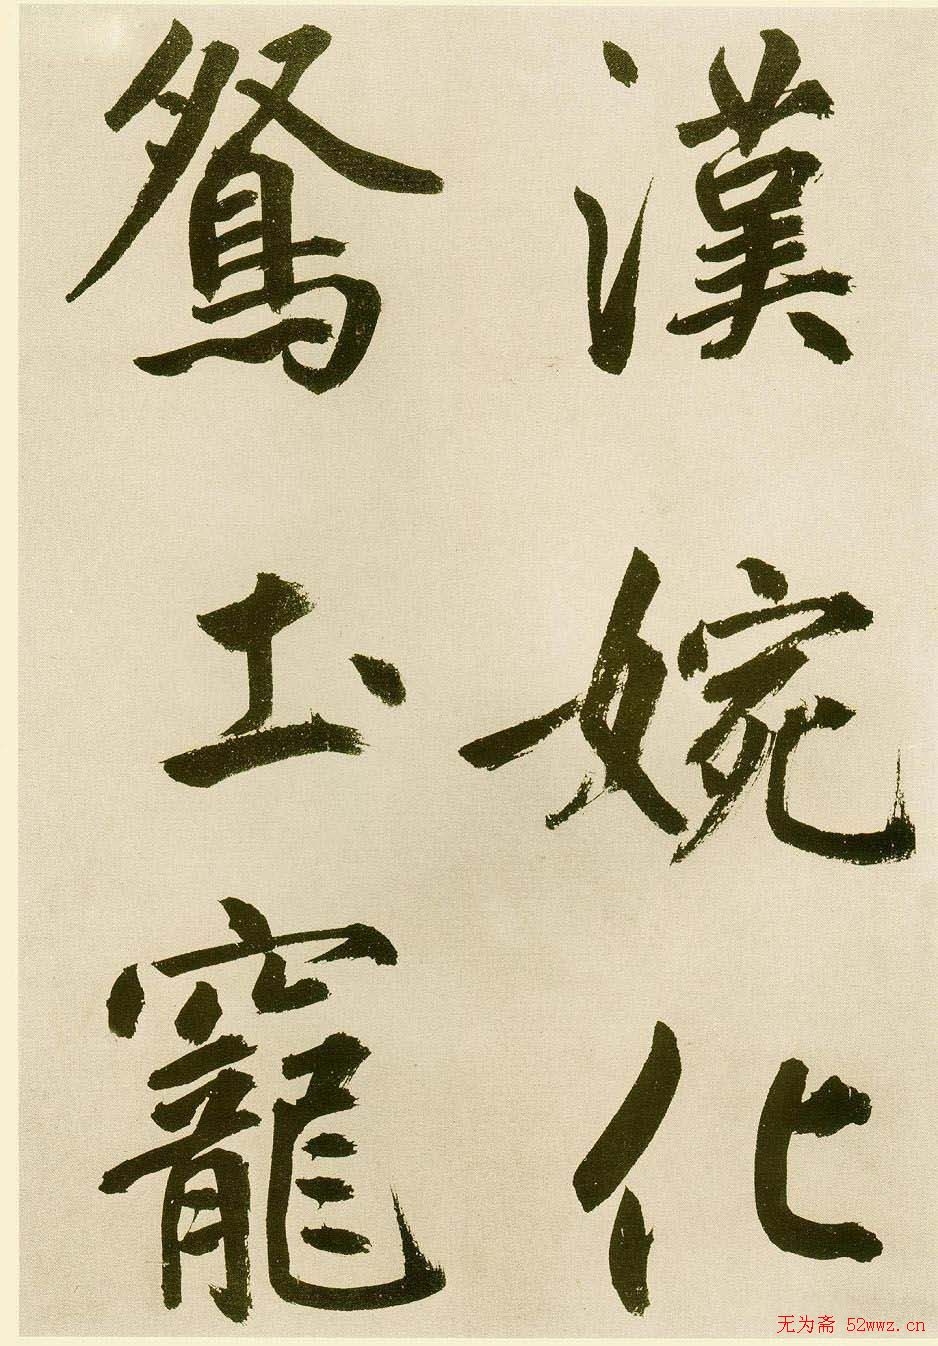 漢婉化
鴛土竉
无为斋 52wwz.cn